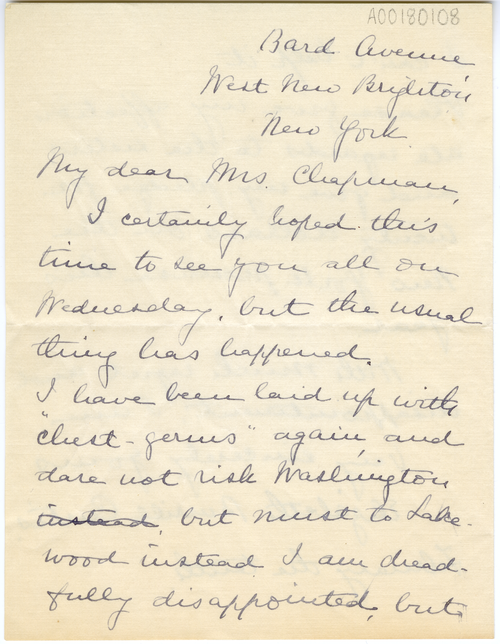 A00180108
Bard Avenue
West New Brighton
New York
My dear Mrs. Chapman,
I certainly hoped this
time to see you all on
Wednesday, but the usual
thing has happened.
I have been laid up with
"chest-germs" again, and
dare not risk Washington
instead, but must to Lake-
wood instead I am dread-
fully disappointed, but